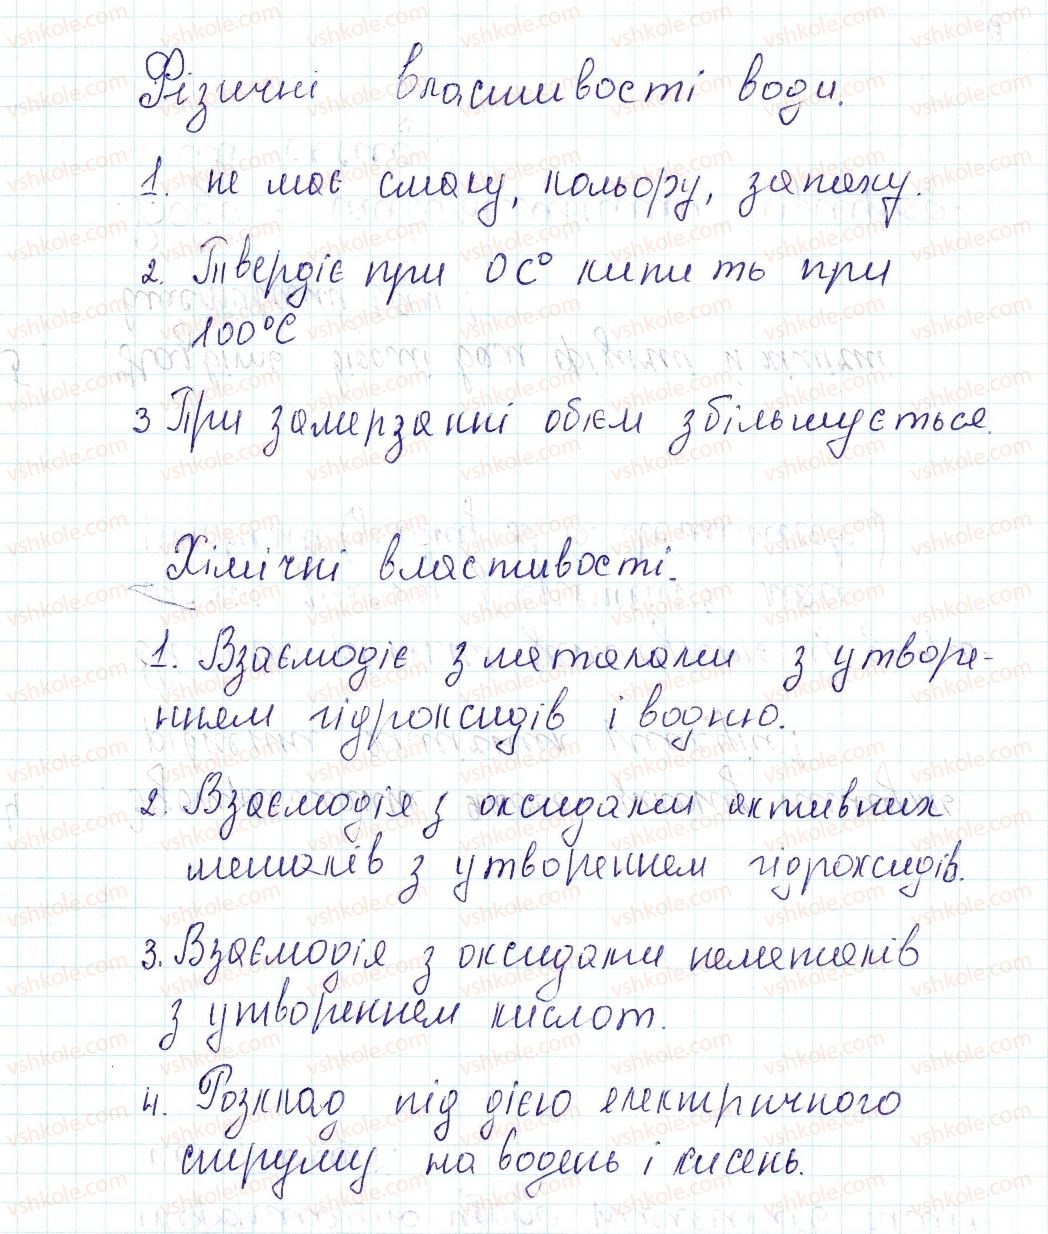 Фізичні властивості води.
1. не має смаку, кольору, запаху.
2. Твердіє при 0С° кипить при
100°С
3 При замерзанні обієм збільшується.
Хімічні властивості.
1. Взаємодіє з металами з утворе-
нням гідроксидів і водню.
2. Взаємодія з оксидами активних
металів з утворенням гідроксидів.
3. Взаємодія з оксидами неметалів
з утворенням кислот.
4. Розклад під дією електричного
струму на водень і кисень.